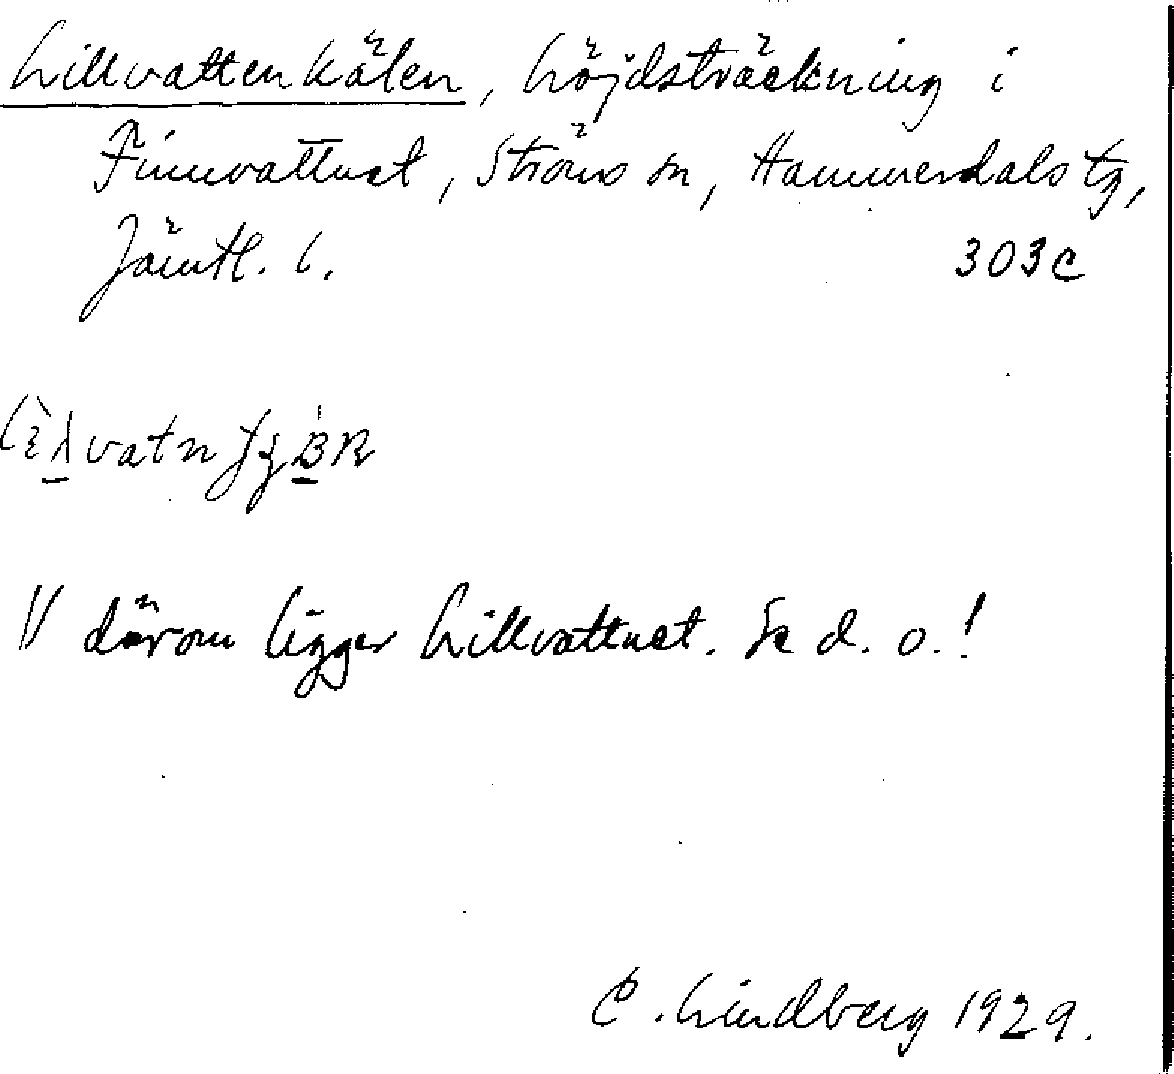 Lillvattenkälen, höjdsträckning i
Finnvattnet, Ströms sn, Hammerdals tg,
Jämtl. l. 303c
V därom ligger Lillvattnet. Se d. o.!
C. Lindberg 1929.